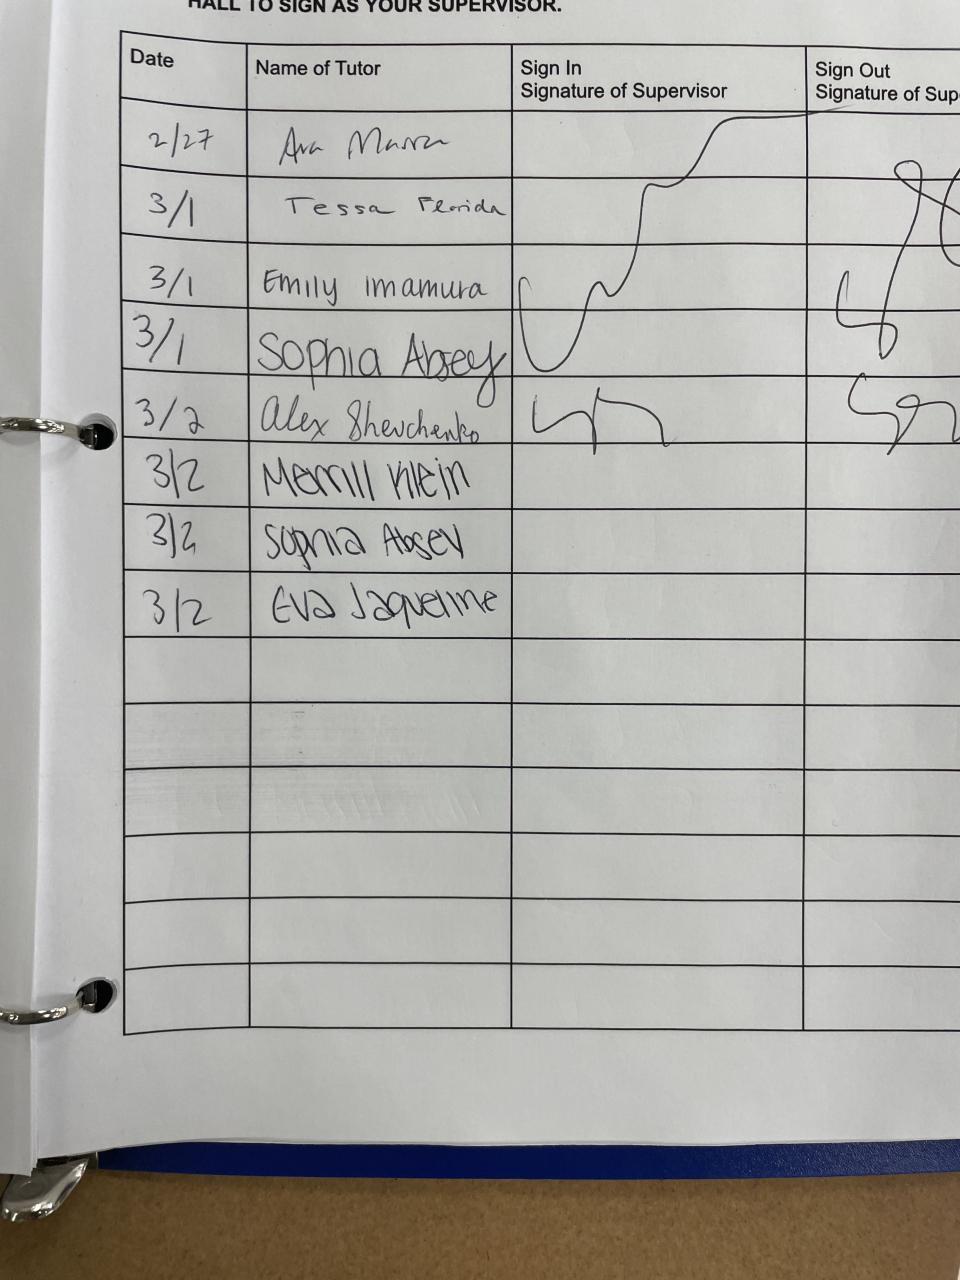 HALL TO SIGN AS YOUR SUPERVISOR.
Date Name of Tutor Sign In Sign Out
Signature of Supervisor Signature of Sup
2/27 Ava
3/1 Tessa Florida
3/1 Emily imamura
3/1 Sophia Absey
3/2 Alex Shevchenko
3/2 Merrill Klein
3/2 Sophia Absey
3/2 Eva Jaqueline